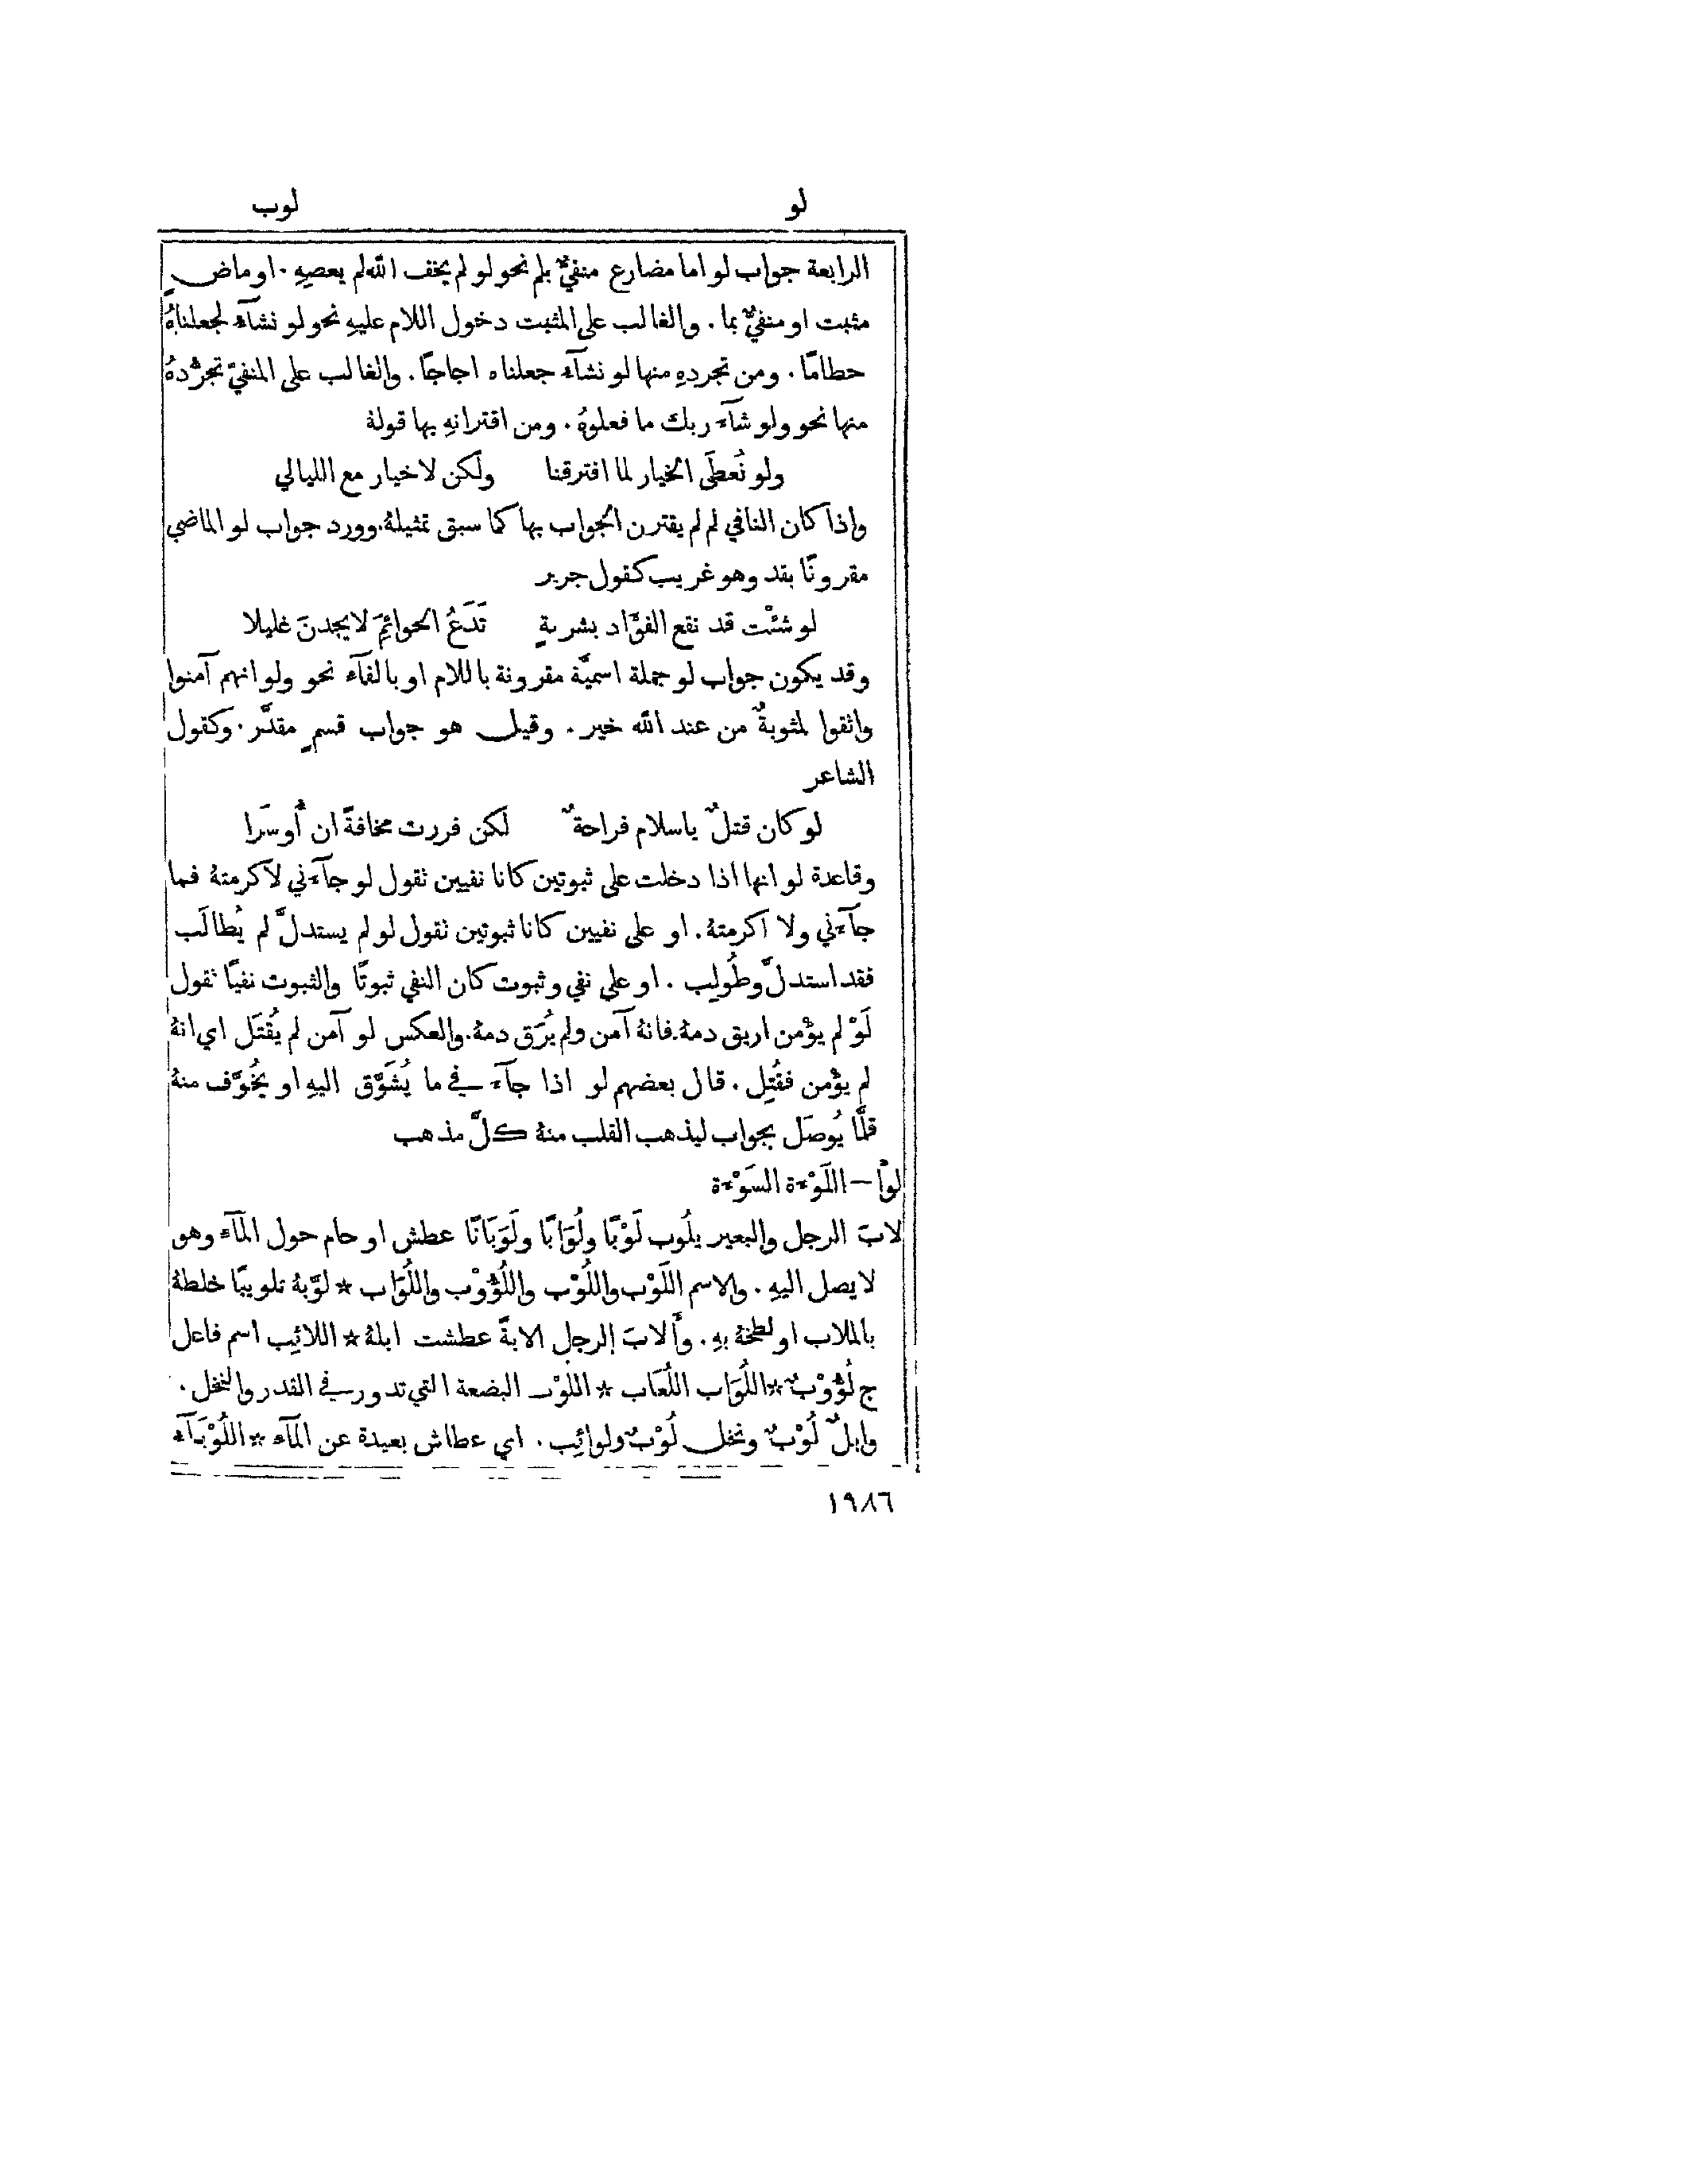 لو لوب
الرابعة جواب لو اما مضارع منفيٌّ بلم نحو لو لم يخف الله لم يعصهِ . او ماضٍ
مثبت او منفيٌّ بما . والغالب على المثبت دخول اللام عليهِ نحو لو نشآء لجعلناهُ
حطامًا . ومن تجردهِ منها لو نشآء جعلناه اجاجًا . والغالب على المنفيّ تجرُّدهُ
منها نحو ولو شآء ربك ما فعلوهُ . ومن اقترانهِ بها قولهُ
ولو نُعطَى الخيار لما افترقنا ولكن لا خيار مع الليالي
واذا كان النافي لم لم يقترن الجواب بها كما سبق تمثيلهُ. وورد جواب لو الماضي
مقرونًا بقد وهو غريب كقول جرير
لو شئْت قد نقع الفؤَاد بشربةٍ تَدَعُ الحوائمَ لا يجدنَ غليلا
وقد يكون جواب لو جملة اسميَّة مقرونة باللام او بالفآء نحو ولو انهم آمنوا
واتقوا لمثوبةٌ من عند الله خير . وقيل هو جواب قسمٍ مقدَّر . وكقول
الشاعر
لو كان قتلٌ ياسلام فراحةٌ لكن فررت مخافةَ ان أُوسَرا
وقاعدة لو انها اذا دخلت على ثبوتين كانا نفيين نقول لو جآءني لاكرمتهُ فما
جآءني ولا اكرمتهُ . او على نفيين كانا ثبوتين نقول لو لم يستدلَّ لم يُطالَب
فقد استدلَّ وطُولِب . او على نفي وثبوت كان النفي ثبوتًا والثبوت نفيًا نقول
لَوْ لم يؤْمن اريق دمهُ. فانهُ آمن ولم يُرَق دمهُ. والعكس لو آمن لم يُقتَل اي انهُ
لم يؤْمن فقُتِل . قال بعضهم لو اذا جآء في ما يُشَوَّق اليهِ او يُخَوَّف منهُ
قلَّما يُوصَل بجواب ليذهب القلب منهُ كلَّ مذهب
لوأ — اللَوْءَة السَوْءَة
لابَ الرجل والبعير يلُوب لَوْبًا ولُوَابًا ولَوَبَانًا عطش او حام حول المآء وهو
لا يصل اليهِ . والاسم اللَوْب واللُوْب واللُؤُوْب واللُوَاب * لوَّبهُ تلويبًا خلطهُ
بالملاب او لطخهُ بهِ . وأَلابَ الرجل الابةً عطشت ابلهُ * اللائِب اسم فاعل
ج لُؤُوْبٌ * اللُوَاب اللُعَاب * اللَوْب البضعة التي تدور في القدر والنخل .
وابلٌ لُوْبٌ ونخل لُوْبٌ ولوائِب . اي عطاش بعيدة عن المآء * اللُوْبَآء
١٩٨٦